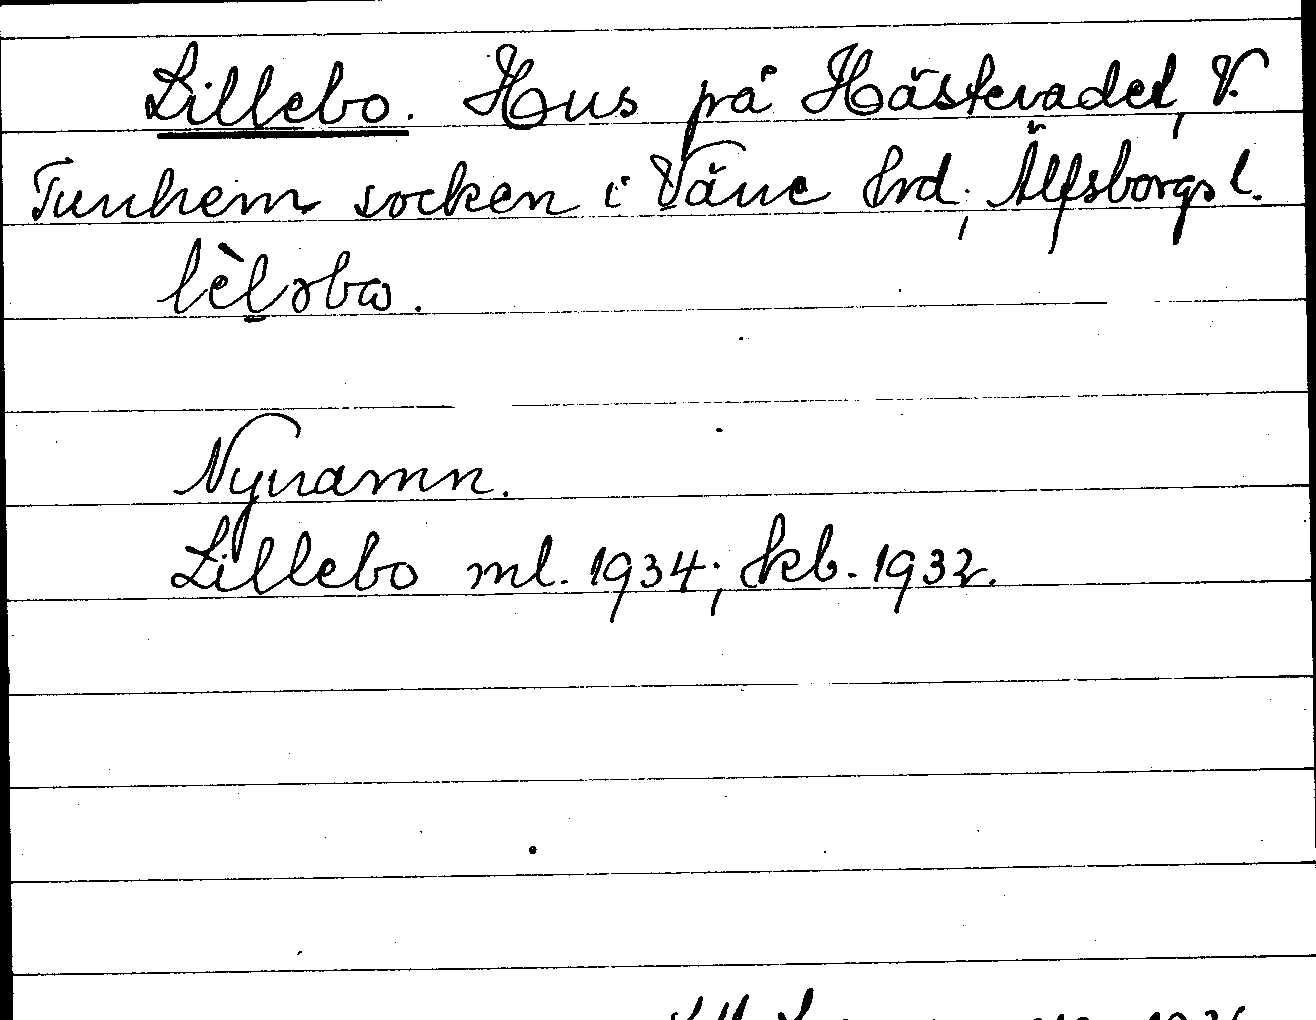 Lillebo. Hus på Hästevadet, V.
Tunhem socken i Väne hrd; Älfsborgs l.
lèləbɷ.
Nynamn.
Lillebo ml. 1934; kb. 1932.